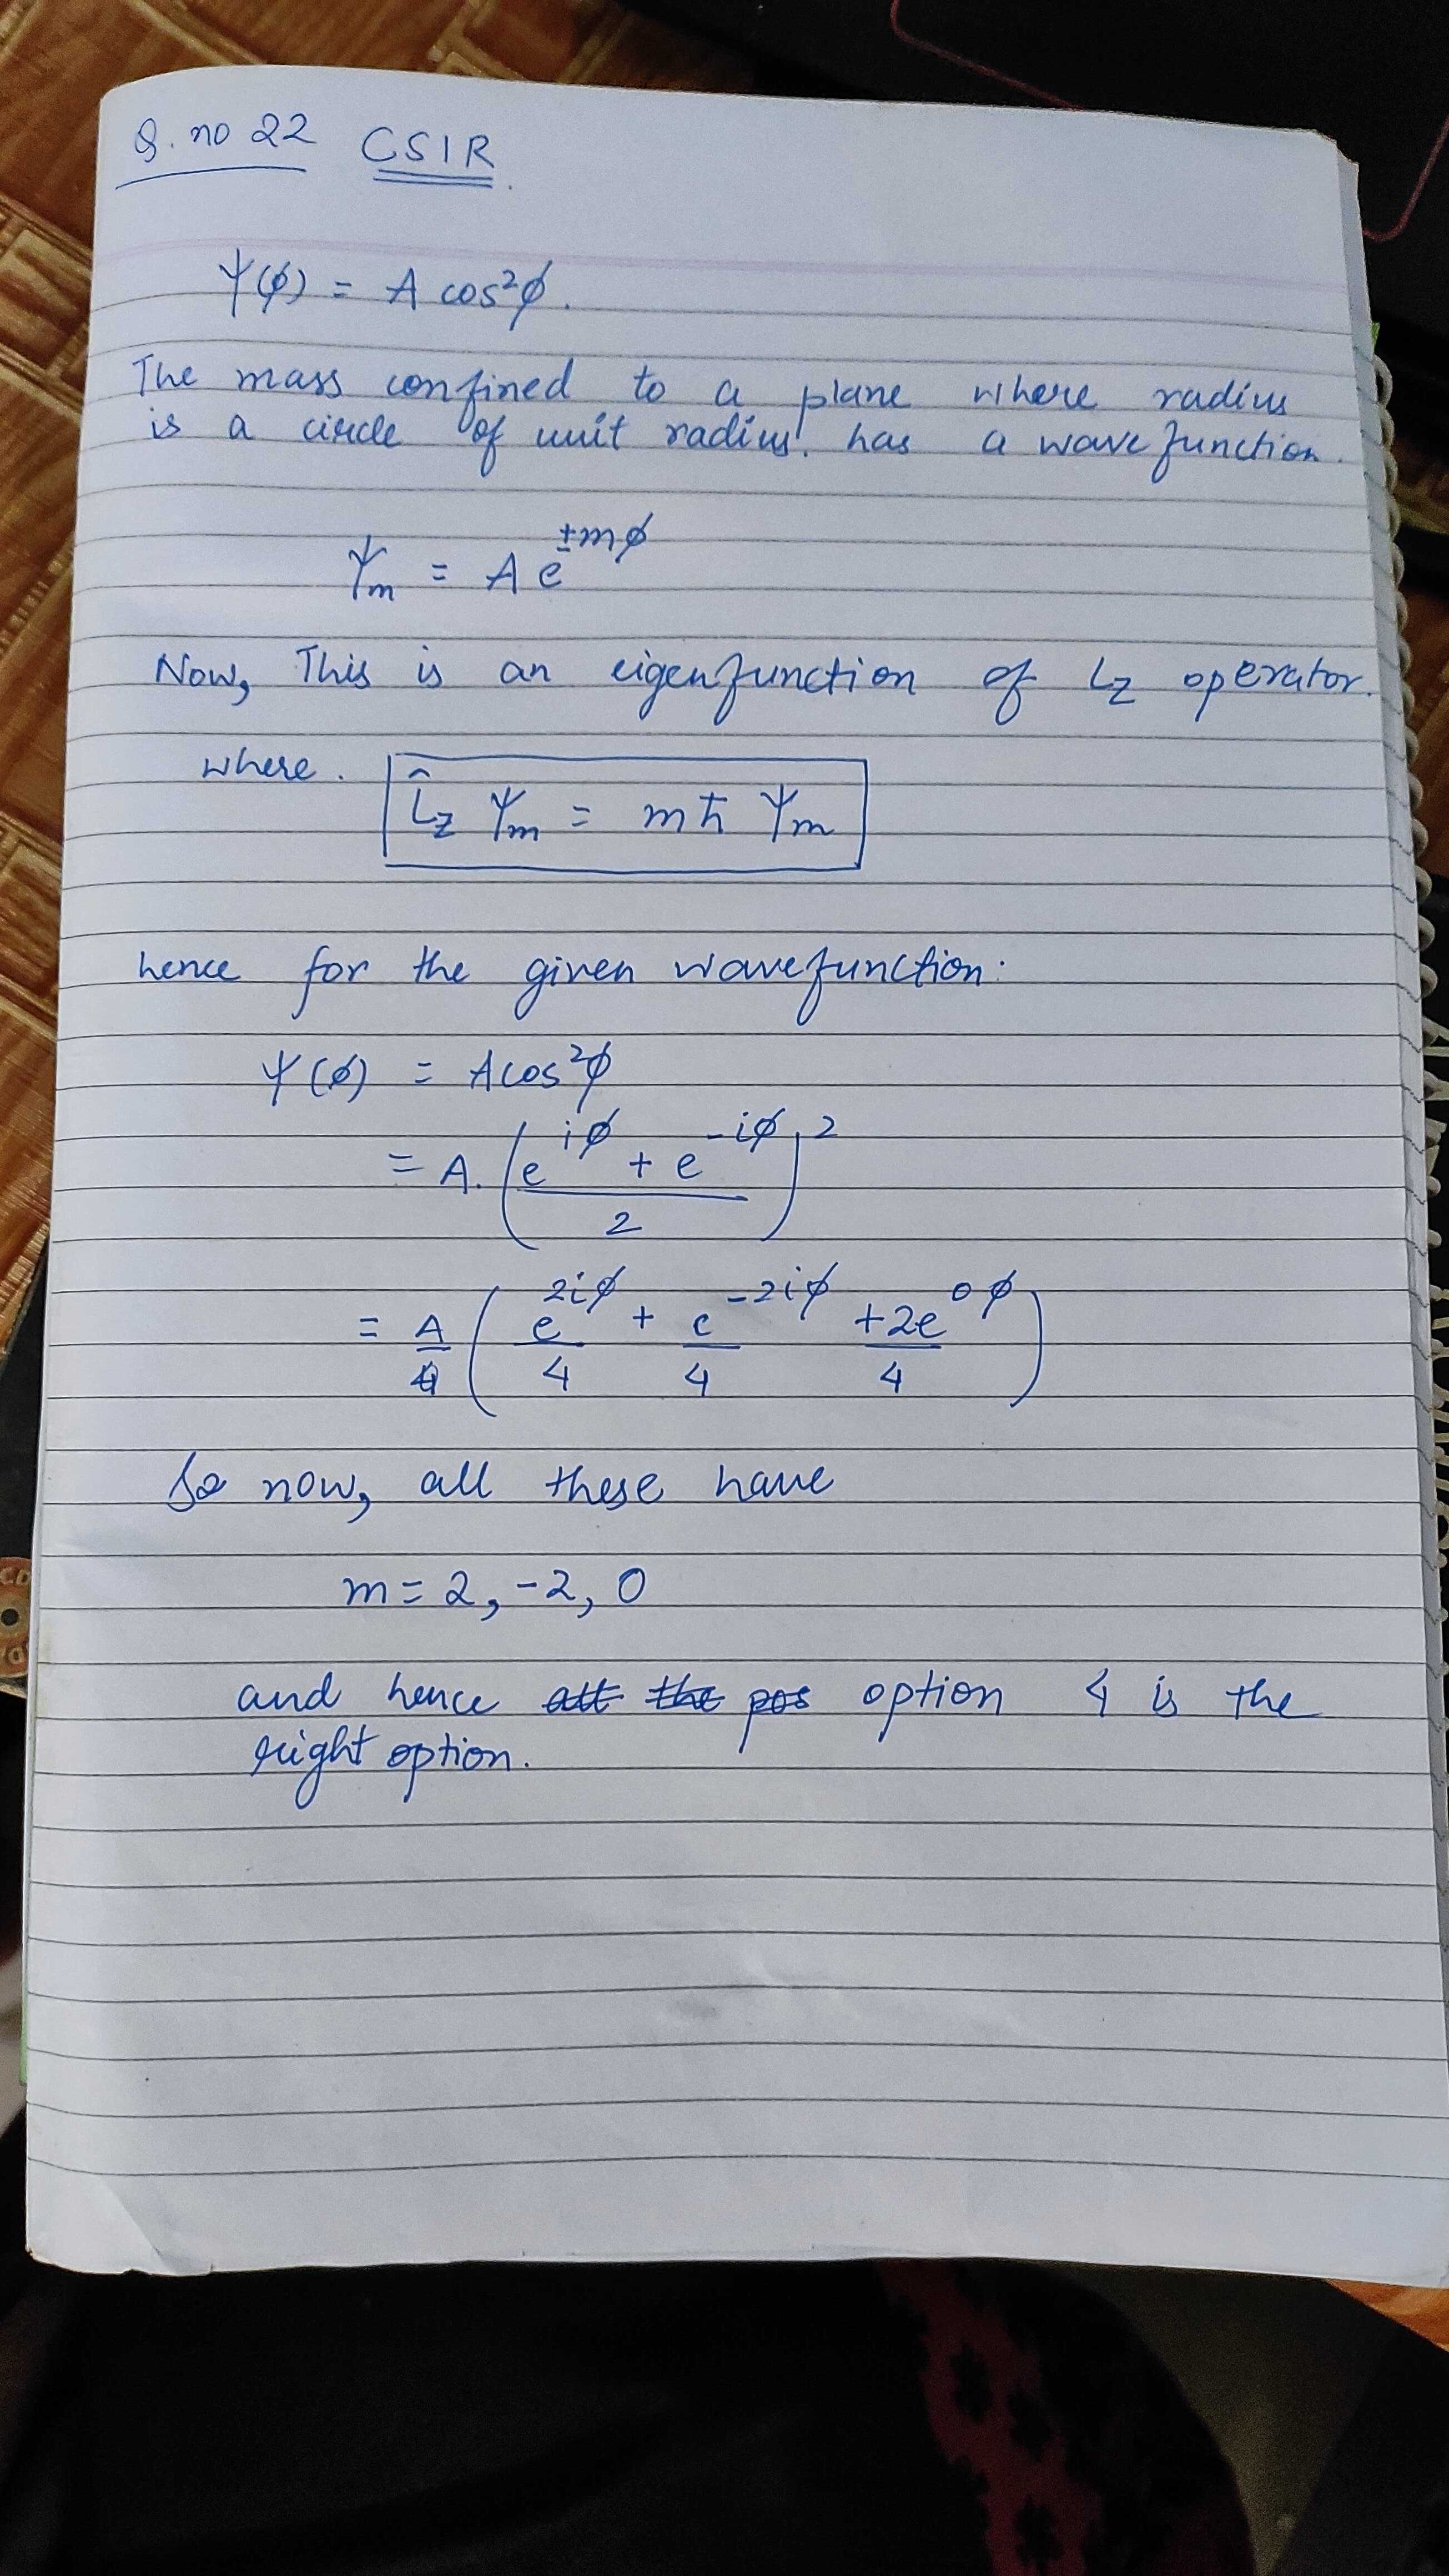 Q. no 22 CSIR
Ψ(ϕ) = A cos²ϕ.
The mass confined to a plane where radius
is a circle of unit radius. has a wavefunction.
Ψm = A e^±mϕ
Now, This is an eigenfunction of Lz operator.
where. L̂z Ψm = mħ Ψm
hence for the given wavefunction:
Ψ(ϕ) = A cos²ϕ
= A. ((e^iϕ + e^-iϕ)/2)²
= A/4 (e^2iϕ/4 + e^-2iϕ/4 + 2e^0ϕ/4)
So now, all these have
m = 2, -2, 0
and hence all the pos option 4 is the
right option.